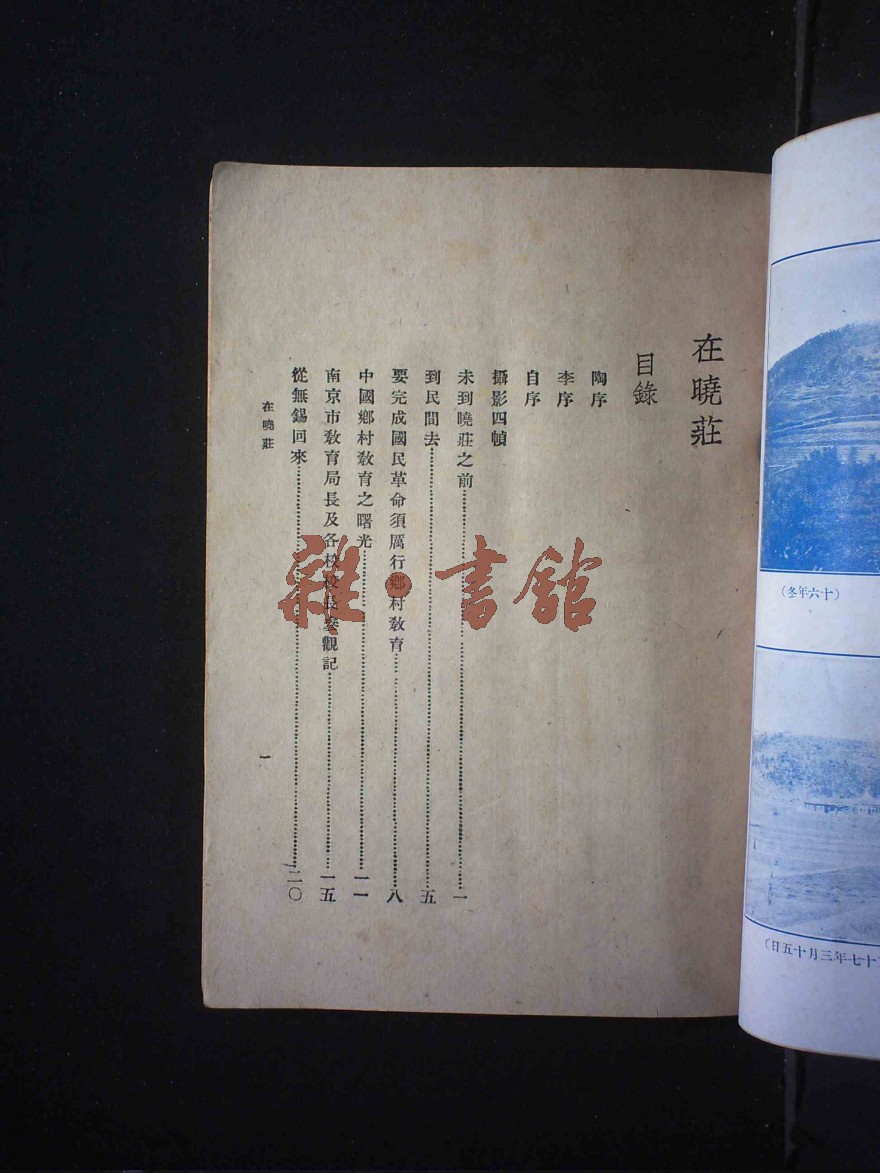 在曉莊
目錄
陶序
李序
自序
攝影四幀
未到曉莊之前……一
到民間去……五
要完成國民革命須厲行鄉村教育……八
中國鄉村教育之曙光……一一
南京市教育局長及各校校長參觀記……一五
從無錫回來……二〇
在曉莊
一
雜·書館
(十六年冬)
十七年三月十五日)